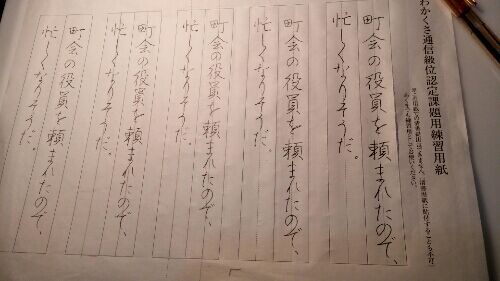 わかくさ通信級位認定課題用練習用紙
町会の役員を頼まれたので、
忙しくなりそうだ。
町会の役員を頼まれたので、
忙しくなりそうだ。
町会の役員を頼まれたので、
忙しくなりそうだ。
町会の役員を頼まれたので、
忙しくなりそうだ。
町会の役員を頼まれたので、
忙しくなりそうだ。